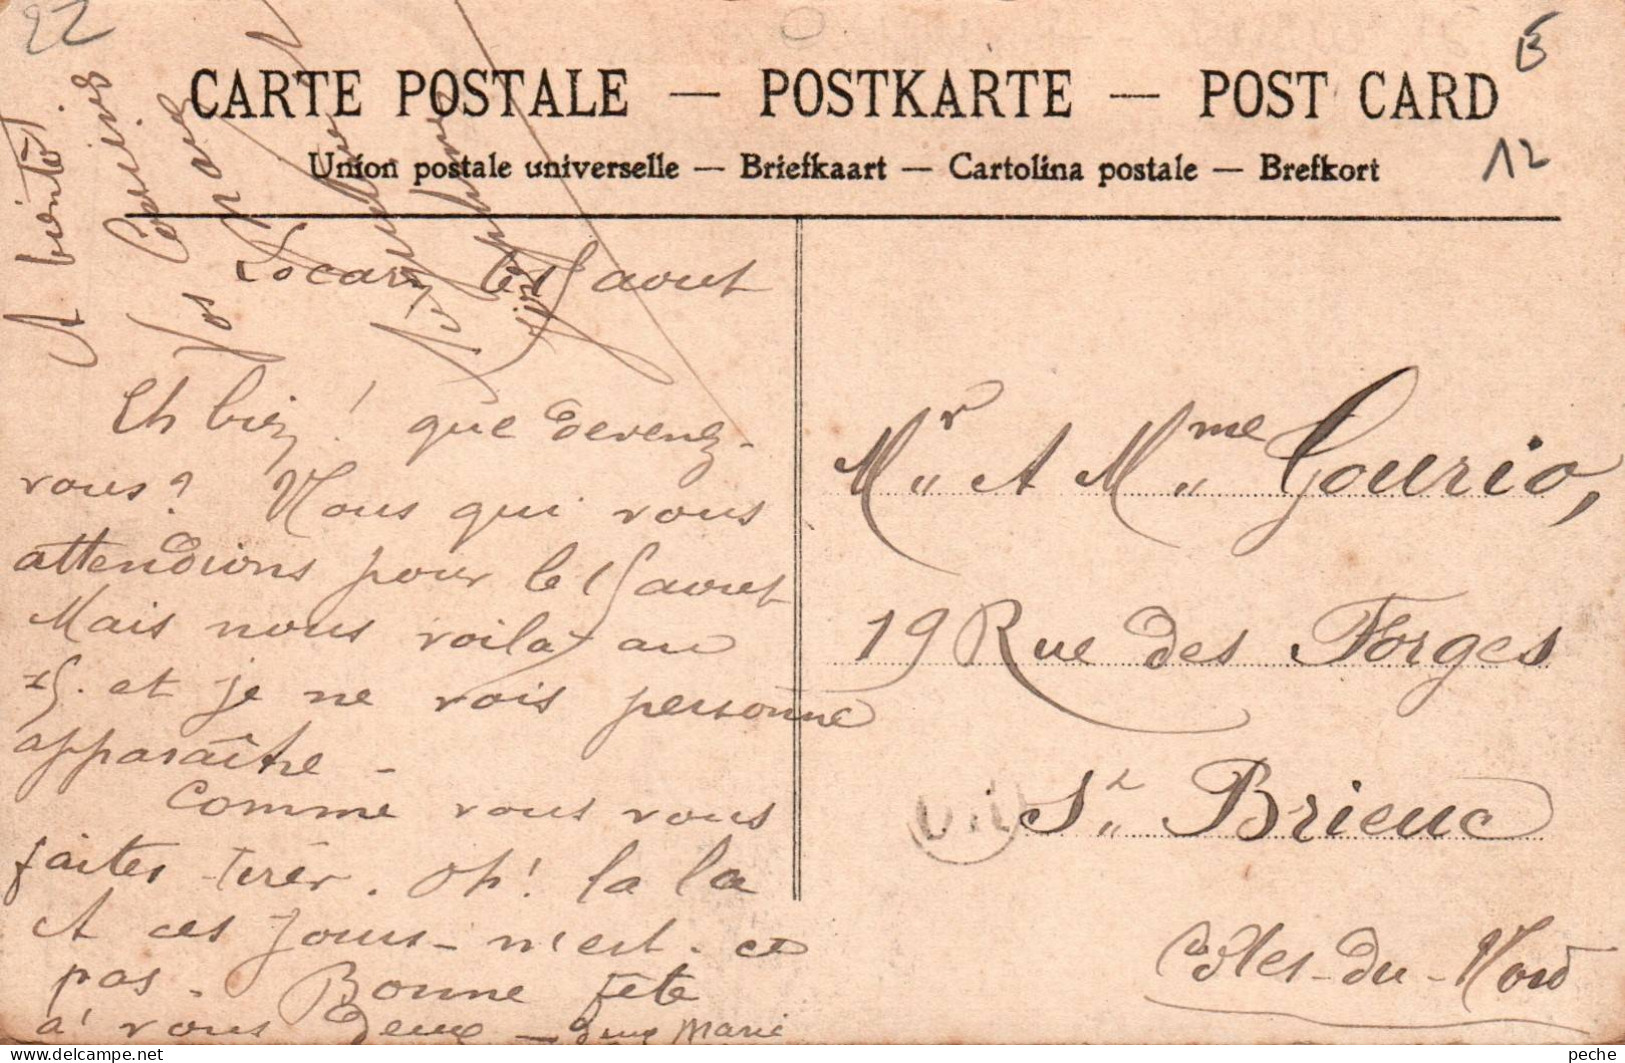 22
B
12
CARTE POSTALE — POSTKARTE — POST CARD
Union postale universelle — Briefkaart — Cartolina postale — Brefkort
Locarn le 15 aout
Eh bien! que devenez-
vous? Nous qui vous
attendions pour le 15 aout
Mais nous voilà au
15. et je ne vois personne
apparaître -
Comme vous vous
faites tirer. Oh! la la
A ces jours - n'est - ce
pas. Bonne fête
à vous deux - Marie
A bientôt.
Cousins
Vos
Mr et Mme Gourio,
19 Rue des Forges
St Brieuc
Côtes-du-Nord
peche